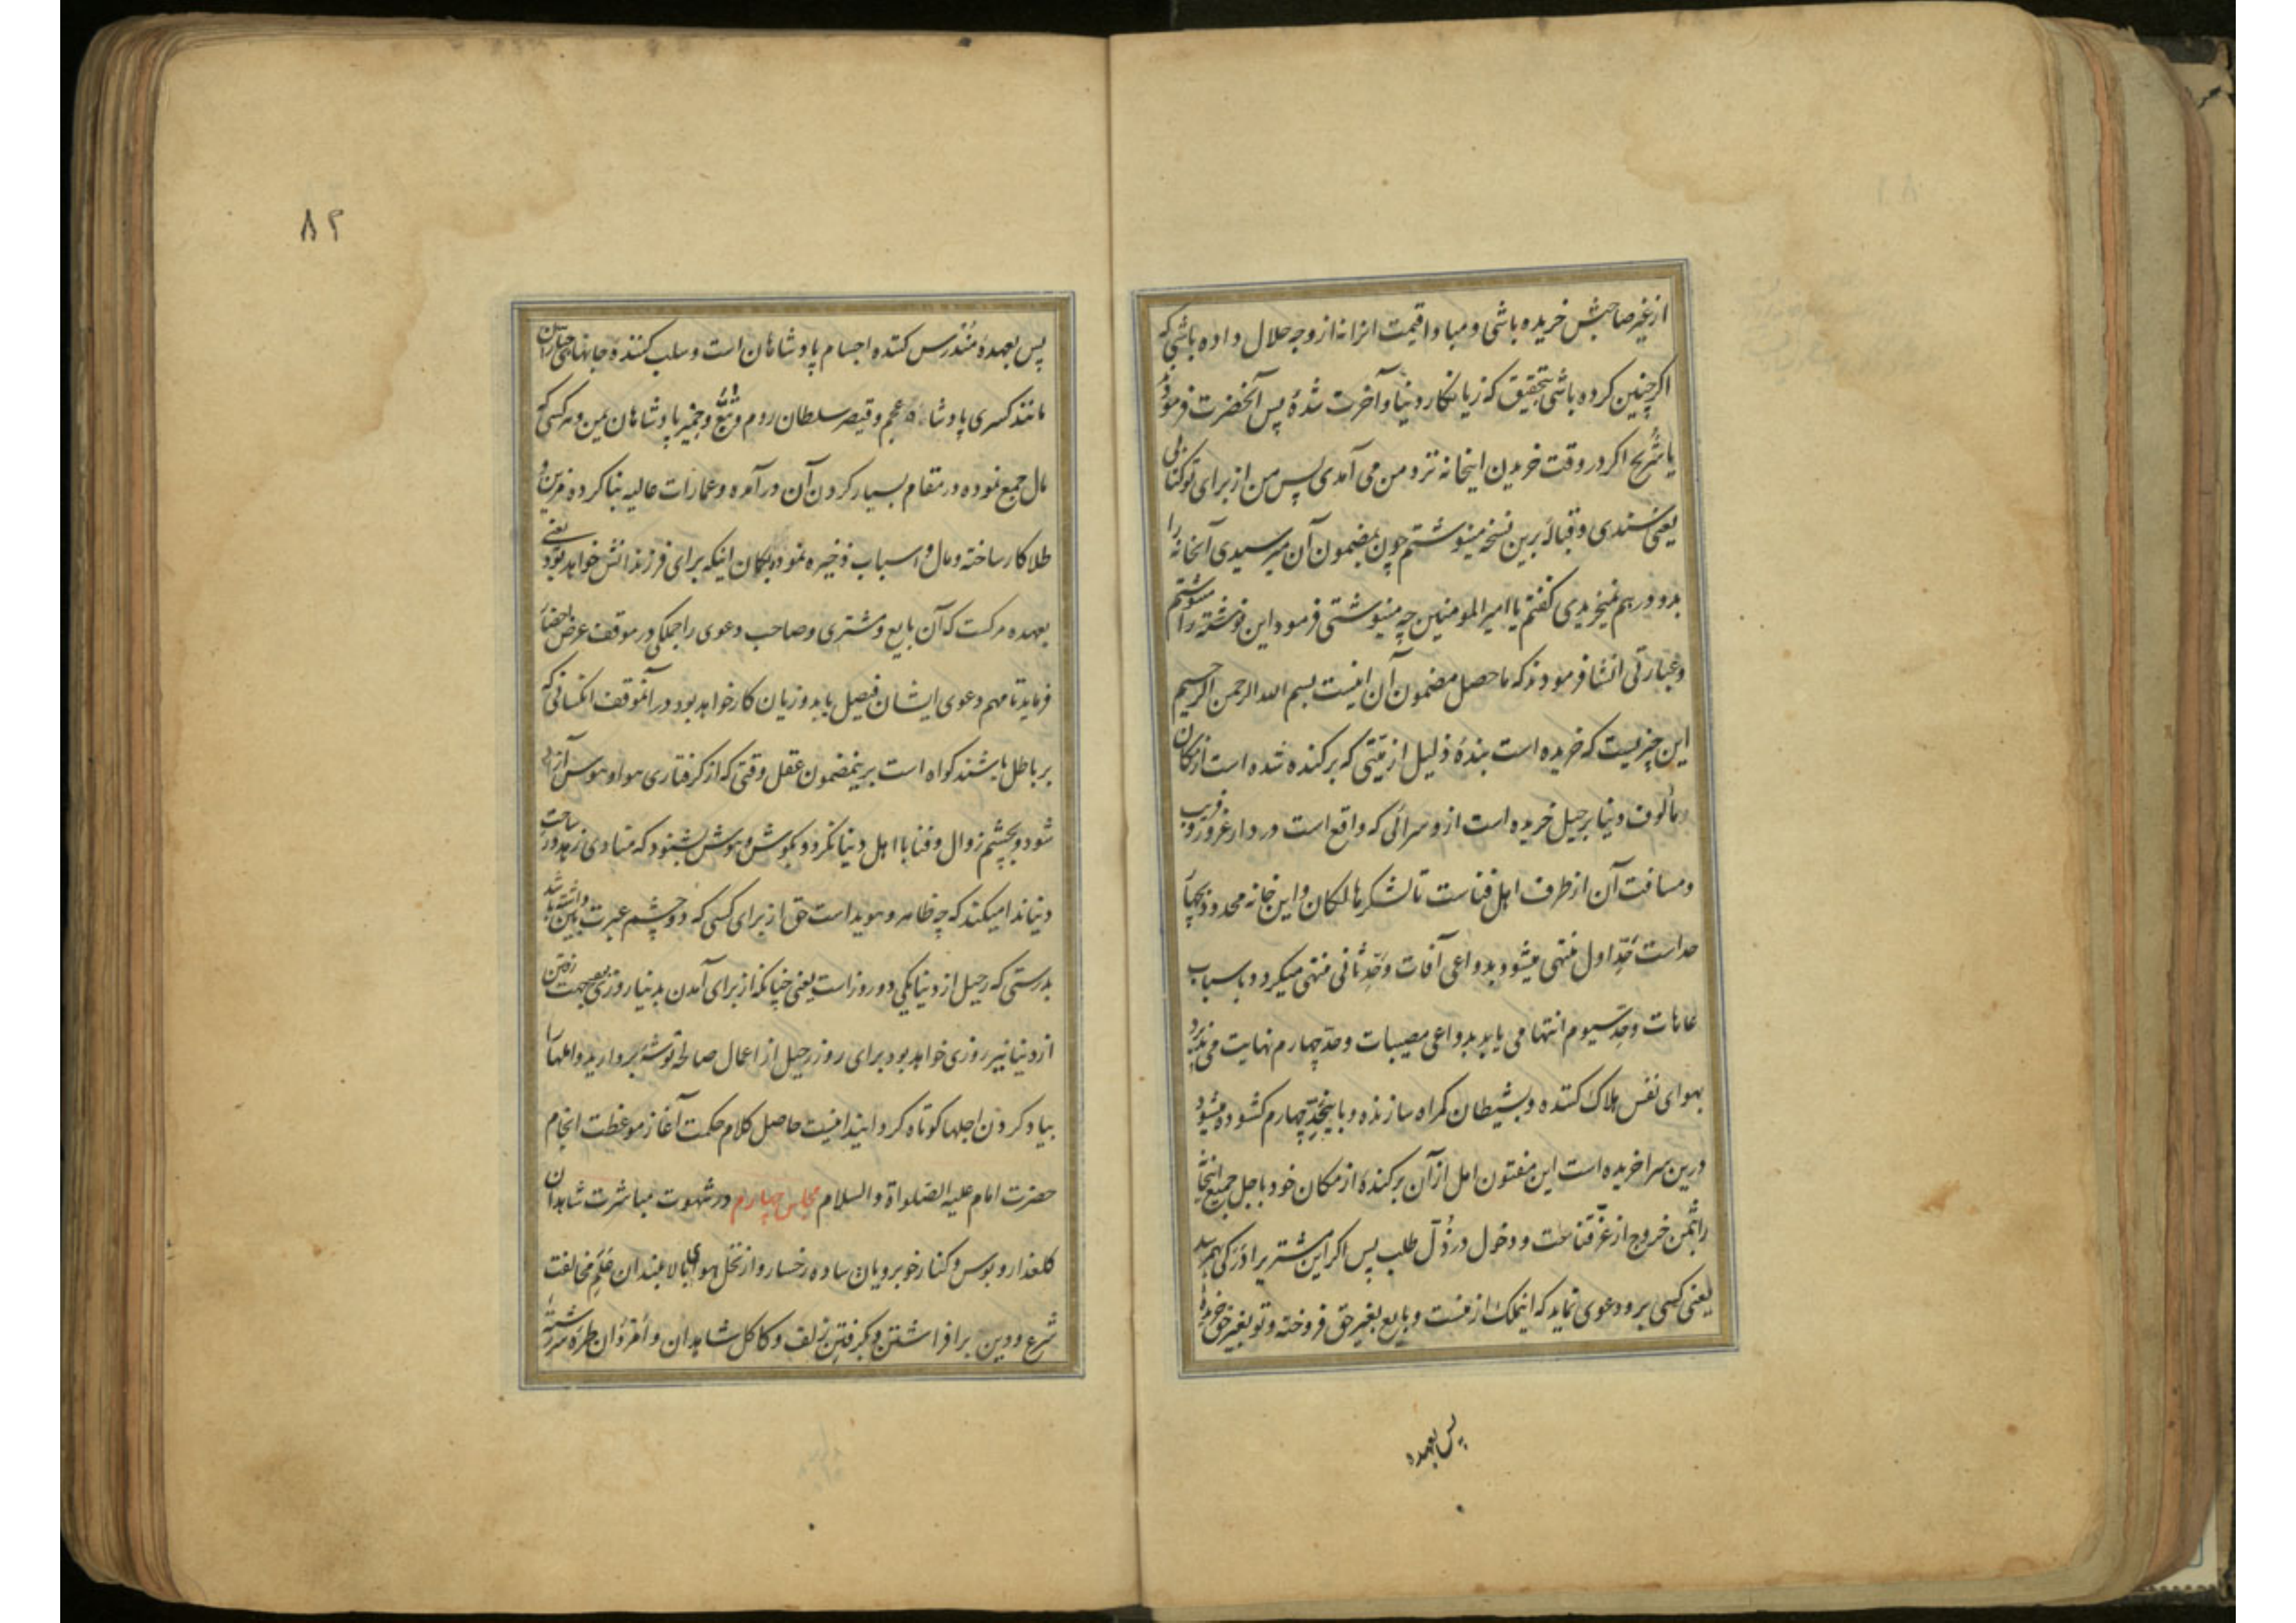 از غیر صاحبش خریده باشی و مبادا قیمت انرانه از وجه حلال داده باشی که
اکر چنین کرده باشی بتحقیق که زیانکار دنیا و آخرت شدهٔ پس آنحضرت فرمود
یا شُریح اکر در وقت خریدن اینخانه نزد من می آمدی پس من از برای تو کتابی
یعنی سندی و قبالهٔ برین نسخه مینوشتم چون بمضمون آن میرسیدی آنخانه را
بدو درهم نمیخریدی کفتم یا امیر المومنین چه مینوشتی فرمود این نوشته را مینوشتم
و عبارتی انشا فرمودند که ماحصل مضمون آن اینست بسم الله الرحمن الرحیم
این چیزیست که خریده است بندهٔ ذلیل از میّتی که برکنده شده است از مکان
و مألوف دنیا برحیل خریده است ازو سرائی که واقع است در دار غرور و فریب
و مسافت آن از طرف اهل فناست تا لشکر هالکان و این خانه محدود بچهار
حد است حَدِّ اول منتهی میشود بدواعی آفات و حَدِّ ثانی منتهی میکردد باسباب
عاهات و حدِّ سیوم انتها می یابد بدواعی مصیبات و حد چهارم نهایت می پذیرد
بهوای نفس هلاک کننده و بشیطان کمراه سازنده و باینحَدِّ چهارم کشوده میشود
درین سرا خریده است این مفتون امل از آن برکندهٔ از مکان خود باجل جمیع اینخانه
را بثمن خروج از عزّ قناعت و دخول در ذُلّ طلب پس اکر این مشتریرا دَرَکی بهم رسد
یعنی کسی برو دعوی نماید که اینملک از منست و بایع بغیر حق فروخته و تو بغیر حق خریدهٔ
پس بعهده
۸۲
پس بعهدهٔ مُندرس کننده اجسام پادشاهان است و سلب کننده جانهای جباران
مانند کسری پادشاه عجم و قیصر سلطان روم و تُبَّع و حِمْیَر پادشاهان یمن و هر کسی که
مال جمع نموده در مقام بسیار کردن آن در آمده و عمارات عالیه بنا کرده و مزین و
طلا کار ساخته و مال و اسباب ذخیره نموده بکمان اینکه برای فرزندانش خواهد بود یعنی
بعهده مرکست که آن بایع و مشتری و صاحب دعوی را جملکی در موقف عرض احضار
فرماید تا مهم دعوی ایشان فیصل یابد و زیان کار خواهد بود در آنموقف انکسانی که
بر باطل باشند کواه است برینمضمون عقل وقتی که از کرفتاری هوا و هوس آزاد
شود و بچشم زوال و فنا با اهل دنیا نکرد و بکوش هوش بشنود که منادی زهد در ساحت
دنیا ندا میکند که چه ظاهر و هویداست حق از برای کسی که دو چشم عبرت بین داشته باشد
بدرستی که رحیل از دنیا یکی دو روز است یعنی چنانکه از برای آمدن بدنیا روزی بود بجهت رفتن
از دنیا نیز روزی خواهد بود برای روز رحیل از اعمال صالحه توشهٔ بردارید و املها را
بیاد کردن اجلها کوتاه کردانید اینست حاصل کلام حکمت آغاز موعظت انجام
حضرت امام علیه الصلواة والسلام مجلس چهارم در شهوت مباشرت شاهدان
کلعذار و بوس و کنار خوبرویان ساده رخسار و از نخل هوای بالا بلندان عَلَمِ مخالفت
شرع و دین بر افراشتن و بکرفتن زلف و کاکل شاهدان و اَمْرَدان طره سررشته